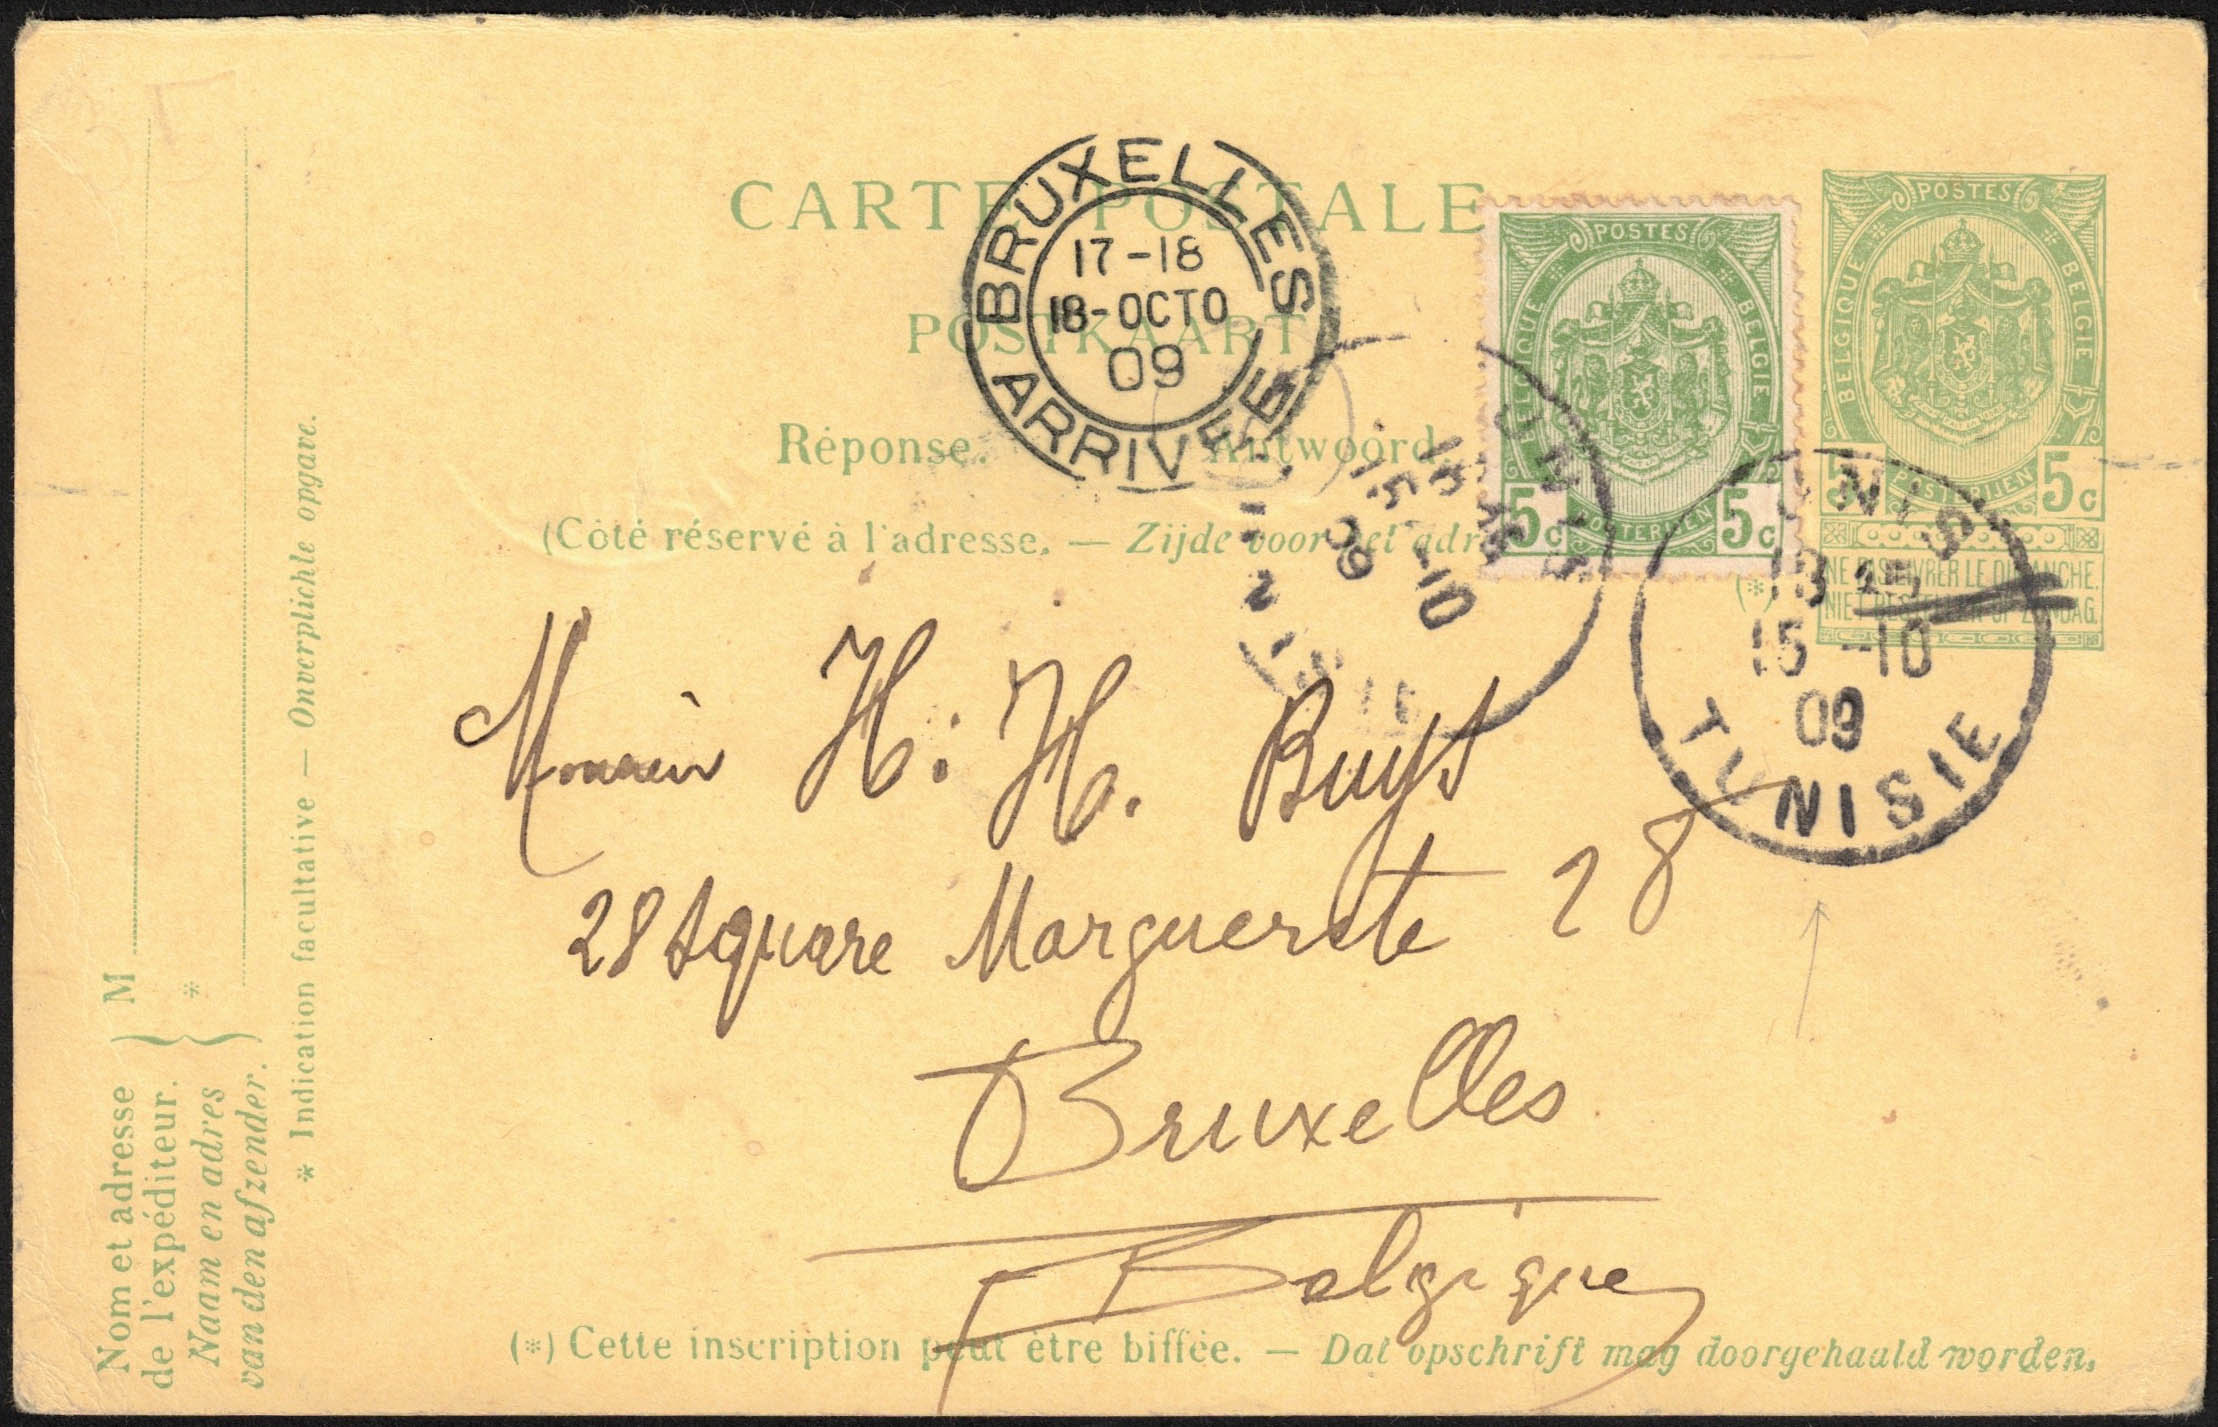 CARTE POSTALE
POSTKAART
Réponse. Antwoord.
(Côté réservé à l'adresse. — Zijde voor het adr
BRUXELLES
17-18
18-OCTO
09
ARRIVEE
POSTES
BELGIQUE BELGIE
5c POSTERIJEN 5c
POSTES
BELGIQUE BELGIE
5 POSTERIJEN 5c
(*) NE PAS LIVRER LE DIMANCHE.
NIET BESTELLEN OP ZONDAG.
TUNIS
15-10
09
TUNISIE
UNIS
18
15-10
09
TUNISIE
H. H. Buyst
28 Square Marguerite 28
Bruxelles
Belgique
(*) Cette inscription peut être biffée. — Dat opschrift mag doorgehaald worden.
Nom et adresse
de l'expéditeur. } M
Naam en adres
van den afzender. } *
* Indication facultative — Onverplichte opgave.